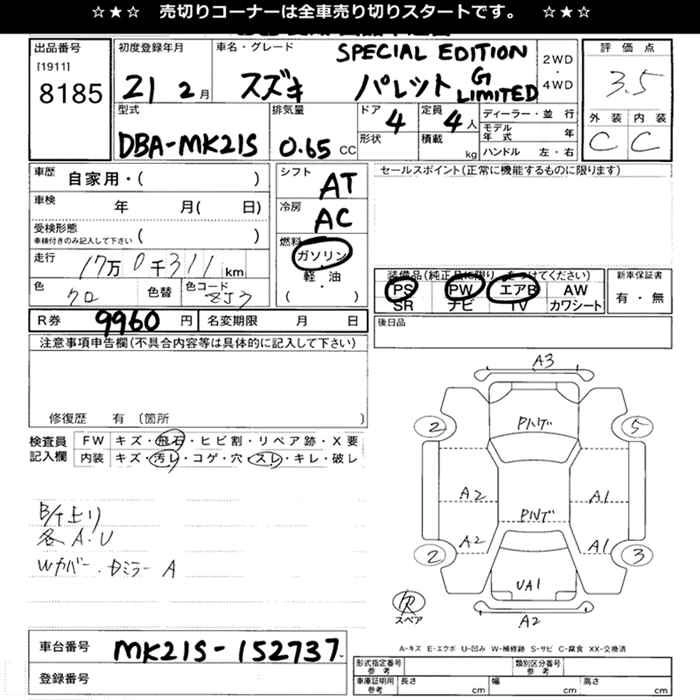 ☆★☆ 売切りコーナーは全車売り切りスタートです。 ☆★☆
出品番号
[1911]
8185
初度登録年月
21 2月
車名・グレード
SPECIAL EDITION
スズキ パレット G LIMITED
2WD
・
4WD
評価点
3.5
外装 内装
C C
型式
DBA-MK21S
排気量
0.65 CC
ドア
4
形状
定員
4人
積載
kg
ディーラー・並行
モデル年式 年
ハンドル 左・右
車歴
自家用・( )
車検
年 月( 日)
受検形態
車検付きのみ記入して下さい ( )
走行
17万0千311 km
色
クロ
色替
色コード
ZJ3
シフト
AT
冷房
AC
燃料
ガソリン
軽・油
( )
セールスポイント(正常に機能するものに限ります)
装備品(純正品に限り をつけてください)
PS PW エアB AW
SR ナビ TV カワシート
新車保証書
有・無
R券 9960 円 名変期限 月 日
後日品
注意事項申告欄(不具合内容等は具体的に記入して下さい)
修復歴 有 (箇所 )
検査員
記入欄
FW キズ・飛石・ヒビ割・リペア跡・X要
内装 キズ・汚レ・コゲ・穴・スレ・キレ・破レ
各A・U
Wカバー・Dミラー A
A3
2
5
A2
A1
A2
A1
2
3
UA1
A2
スペア
車台番号 MK21S-152737
登録番号
A-キズ E-エクボ U-凹み W-補修跡 S-サビ C-腐食 XX-交換済
形式指定番号
参考
類別区分番号
参考
車庫証明用
参考
長さ cm 幅 cm 高さ cm